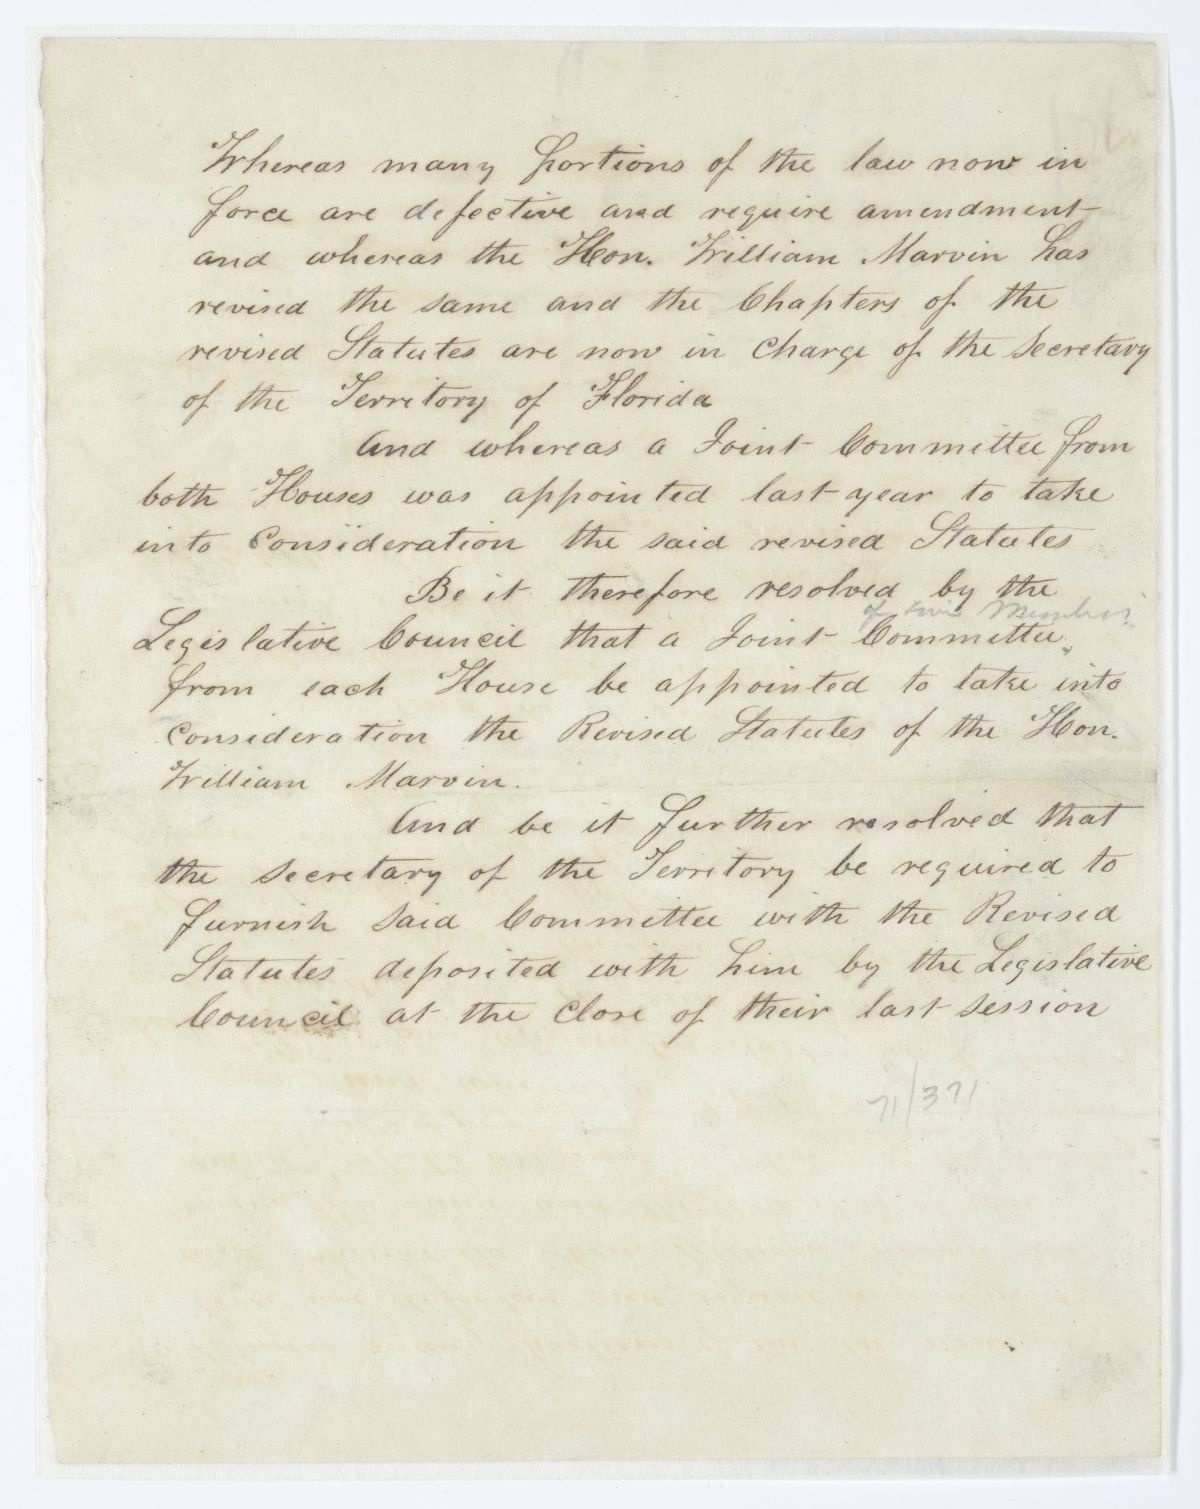 Whereas many portions of the law now in
force are defective and require amendment
and whereas the Hon. William Marvin has
revised the same and the Chapters of the
revised Statutes are now in charge of the Secretary
of the Territory of Florida
And whereas a Joint Committee from
both Houses was appointed last year to take
into Consideration the said revised Statutes
Be it therefore resolved by the
of five Members
Legislative Council that a Joint Committee
from each House be appointed to take into
consideration the Revised Statutes of the Hon.
William Marvin.
And be it further resolved that
the Secretary of the Territory be required to
furnish said Committee with the Revised
Statutes deposited with him by the Legislative
Council at the Close of their last session
71/371